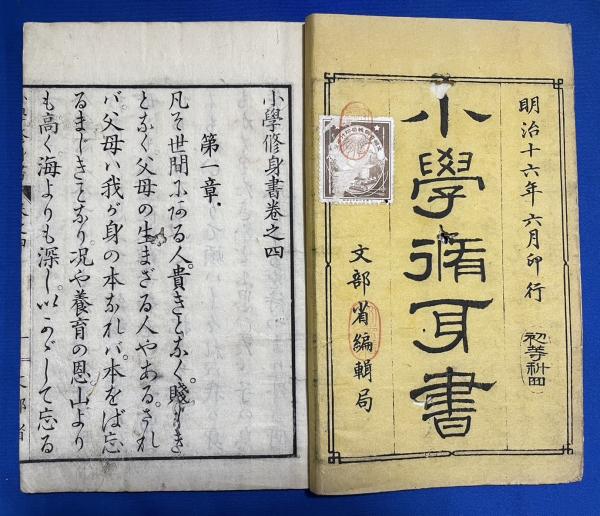 明治十六年六月印行
初等科四
小學脩身書
文部省編輯局
小學修身書卷之四
第一章
凡そ世間にある人。貴きとなく。賤しき
となく父母の生まざる人やある。され
バ。父母ハ我が身の本なれバ。本をば忘
るまじきことなり。况や養育の恩山より
も高く海よりも深し。いかゞして忘る